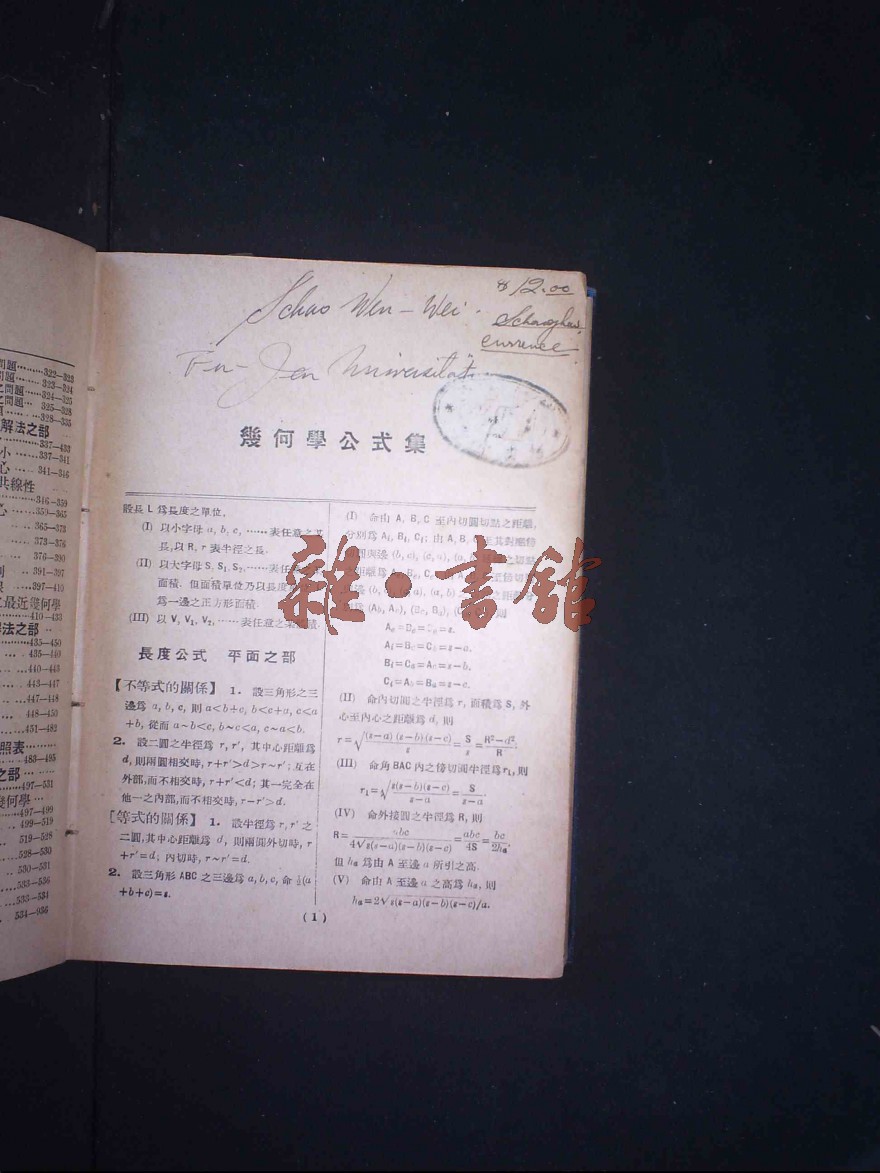 問題………322—323
問題…… 323—324
之問題……324—325
之問題… 325—328
…328—335
解法之部
…337—433
小……337—341
心…… 341—346
共線性
…346—359
心……359—365
365—373
373—376
376—380
391—397
…397—410
最近幾何學
…410—433
解法之部
…435—450
435—440
…440—443
443—447
…447—448
448—450
…451—482
照表
483—495
之部
…497—531
幾何學…
…497—499
499—519
519—528
528—530
530—531
…533—536
…533—534
534—936
Schao Wen-Wei.
Fu-Jen Universität
$12.00
currence
幾何學公式集
設長 L 爲長度之單位,
(I) 以小字母 a, b, c, ……表任意之
長,以 R, r 表半徑之長.
(II) 以大字母 S, S₁, S₂,……表任
面積. 但面積單位乃以長度
爲一邊之正方形面積.
(III) 以 V, V₁, V₂, ……表任意之 積.
長度公式 平面之部
【不等式的關係】 1. 設三角形之三
邊爲 a, b, c, 則 a<b+c, b<c+a, c<a
+b, 從而 a~b<c, b~c<a, c~a<b.
2. 設二圓之半徑爲 r, r′, 其中心距離爲
d, 則兩圓相交時, r+r′>d>r~r′; 互在
外部,而不相交時, r+r′<d; 其一完全在
他一之內部,而不相交時, r~r′>d.
【等式的關係】 1. 設半徑爲 r, r′ 之
二圓,其中心距離爲 d, 則兩圓外切時, r
+r′=d; 內切時, r~r′=d.
2. 設三角形 ABC 之三邊爲 a, b, c, 命 ½(a
+b+c)=s.
(I) 命由 A, B, C 至內切圓切點之距離,
分別爲 Aᵢ, Bᵢ, Cᵢ; 由 A, B,
Aᵢ=B꜀=Cᵦ=s−a.
Bᵢ=Cₐ=A꜀=s−b.
Cᵢ=Aᵦ=Bₐ=s−c.
(II) 命內切圓之半徑爲 r, 面積爲 S, 外
心至內心之距離爲 d, 則
r=√((s−a)(s−b)(s−c)/s)=S/s=(R²−d²)/R.
(III) 命角 BAC 內之傍切圓半徑爲 r₁, 則
r₁=√(s(s−b)(s−c)/(s−a))=S/(s−a).
(IV) 命外接圓之半徑爲 R, 則
R=abc/(4√s(s−a)(s−b)(s−c))=abc/4S=bc/2hₐ,
但 hₐ 爲由 A 至邊 a 所引之高.
(V) 命由 A 至邊 a 之高爲 hₐ, 則
hₐ=2√s(s−a)(s−b)(s−c)/a.
(1)
雜·書館